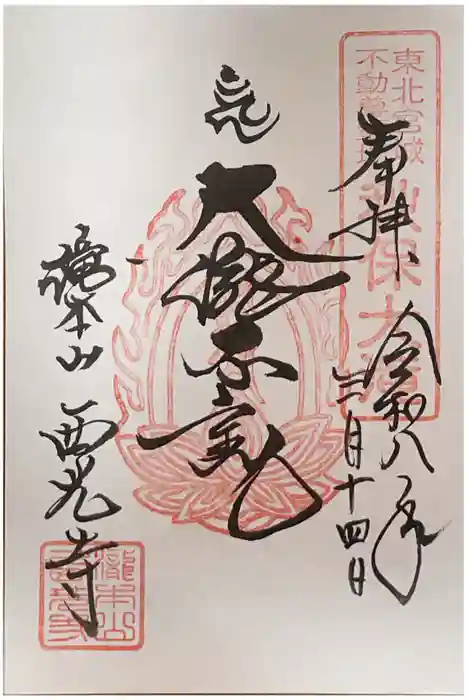 東北宮城
不動尊霊場
秋保大滝
奉拝
令和八年
三月十四日
大滝不動
滝本山 西光寺
瀧本山
西光寺